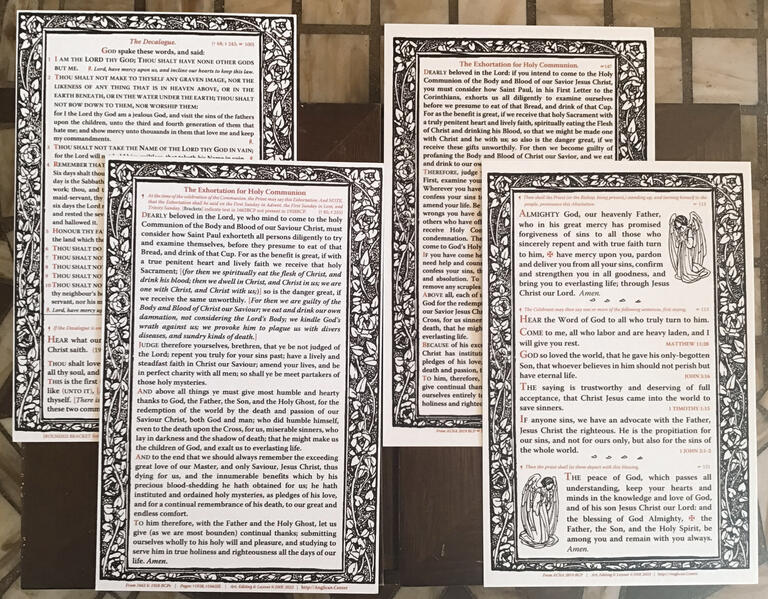 The Decalogue.
(† 68; ‡ 243; ∞ 100)
GOD spake these words, and said:
1 I AM THE LORD THY GOD; THOU SHALT HAVE NONE OTHER GODS
BUT ME. R. Lord, have mercy upon us, and incline our hearts to keep this law.
2 THOU SHALT NOT MAKE TO THYSELF ANY GRAVEN IMAGE, NOR THE
LIKENESS OF ANY THING THAT IS IN HEAVEN ABOVE, OR IN THE
EARTH BENEATH, OR IN THE WATER UNDER THE EARTH; THOU SHALT
NOT BOW DOWN TO THEM, NOR WORSHIP THEM:
for I the Lord thy God am a jealous God, and visit the sins of the fathers
upon the children, unto the third and fourth generation of them that
hate me; and show mercy unto thousands in them that love me and keep
my commandments.
3 THOU SHALT NOT TAKE THE NAME OF THE LORD THY GOD IN VAIN;
for the Lord will
4 REMEMBER THAT
Six days shalt thou
day is the Sabbath
work; thou, and t
maid-servant, thy
six days the Lord
and rested the sev
and hallowed it.
5 HONOUR THY FA
the land which the
6 THOU SHALT DO
7 THOU SHALT NOT
8 THOU SHALT NOT
9 THOU SHALT NOT
10 THOU SHALT NOT
thy neighbour's
servant, nor his
R. Lord, have mercy
¶ If the Decalogue is
HEAR what our
Christ saith.
THOU shalt love
all thy soul, and
THIS is the first
like (UNTO IT),
thyself. [There is
these two comm
[ROUNDED] BRACKET
The Exhortation for Holy Communion
¶ At the time of the celebration of the Communion, the Priest may say this Exhortation. And NOTE,
that the Exhortation shall be said on the First Sunday in Advent, the First Sunday in Lent, and
Trinity Sunday. [Brackets] indicate text in 1662BCP not present in 1928BCP.
DEARLY beloved in the Lord, ye who mind to come to the holy
Communion of the Body and Blood of our Saviour Christ, must
consider how Saint Paul exhorteth all persons diligently to try
and examine themselves, before they presume to eat of that
Bread, and drink of that Cup. For as the benefit is great, if with
a true penitent heart and lively faith we receive that holy
Sacrament; [(for then we spiritually eat the flesh of Christ, and
drink his blood; then we dwell in Christ, and Christ in us; we are
one with Christ, and Christ with us;)] so is the danger great, if
we receive the same unworthily. [For then we are guilty of the
Body and Blood of Christ our Saviour; we eat and drink our own
damnation, not considering the Lord's Body; we kindle God's
wrath against us; we provoke him to plague us with divers
diseases, and sundry kinds of death.]
JUDGE therefore yourselves, brethren, that ye be not judged of
the Lord; repent you truly for your sins past; have a lively and
steadfast faith in Christ our Saviour; amend your lives, and be
in perfect charity with all men; so shall ye be meet partakers of
those holy mysteries.
AND above all things ye must give most humble and hearty
thanks to God, the Father, the Son, and the Holy Ghost, for
the redemption of the world by the death and passion of our
Saviour Christ, both God and man; who did humble himself,
even to the death upon the Cross, for us, miserable sinners, who
lay in darkness and the shadow of death; that he might make us
the children of God, and exalt us to everlasting life.
AND to the end that we should always remember the exceeding
great love of our Master, and only Saviour, Jesus Christ, thus
dying for us, and the innumerable benefits which by his
precious blood-shedding he hath obtained for us; he hath
instituted and ordained holy mysteries, as pledges of his love,
and for a continual remembrance of his death, to our great and
endless comfort.
TO him therefore, with the Father and the Holy Ghost, let us
give (as we are most bounden) continual thanks; submitting
ourselves wholly to his holy will and pleasure, and studying to
serve him in true holiness and righteousness all the days of our
life. Amen.
From 1662 & 1928 BCPs | Art, Editing & Layout © DSR 2022 | http://Anglican.Center
The Exhortation for Holy Communion.
∞147
DEARLY beloved in the Lord: if you intend to come to the Holy
Communion of the Body and Blood of our Savior Jesus Christ,
you must consider how Saint Paul, in his First Letter to the
Corinthians, exhorts us all diligently to examine ourselves
before we presume to eat of that Bread, and drink of that Cup.
For as the benefit is great, if we receive that holy Sacrament with
a truly penitent heart and lively faith, spiritually eating the Flesh
of Christ and drinking his Blood, so that we might be made one
with Christ and he with us; so also is the danger great, if we
receive these gifts unworthily. For then we become guilty of
profaning the Body and Blood of Christ our Savior, and we eat
and drink to our ow
THEREFORE, judge y
First, examine your
Wherever you have
confess your sins t
amend your life. Be
wrongs you have d
others who have off
receive Holy Com
condemnation. The
come to God's Holy
IF you have come h
need help and couns
confess your sins, th
and absolution. To
remove any scruples
ABOVE all, each of
God for the redemp
our Savior Jesus Ch
Cross, for us sinner
death, that he migh
everlasting life.
BECAUSE of his exc
Christ has instituti
pledges of his love,
death, and to our
TO him, therefore,
give continual than
ourselves entirely t
holiness and righteo
From ACNA 2019 BCP
¶ Then shall the Priest (or the Bishop, being present) standing up, and turning himself to the
people, pronounce this Absolution.
∞ 113
ALMIGHTY God, our heavenly Father,
who in his great mercy has promised
forgiveness of sins to all those who
sincerely repent and with true faith turn
to him, ✠ have mercy upon you, pardon
and deliver you from all your sins, confirm
and strengthen you in all goodness, and
bring you to everlasting life; through Jesus
Christ our Lord. Amen.
¶ The Celebrant may then say one or more of the following sentences, first saying,
∞ 113
HEAR the Word of God to all who truly turn to him.
COME to me, all who labor and are heavy laden, and I
will give you rest.
MATTHEW 11:28
GOD so loved the world, that he gave his only-begotten
Son, that whoever believes in him should not perish but
have eternal life.
JOHN 3:16
THE saying is trustworthy and deserving of full
acceptance, that Christ Jesus came into the world to
save sinners.
1 TIMOTHY 1:15
IF anyone sins, we have an advocate with the Father,
Jesus Christ the righteous. He is the propitiation for
our sins, and not for ours only, but also for the sins of
the whole world.
1 JOHN 2:1-2
¶ Then the priest shall let them depart with this blessing.
∞ 121
THE peace of God, which passes all
understanding, keep your hearts and
minds in the knowledge and love of God,
and of his son Jesus Christ our Lord: and
the blessing of God Almighty, ✠ the
Father, the Son, and the Holy Spirit, be
among you and remain with you always.
Amen.
From ACNA 2019 BCP | Art, Editing & Layout © DSR 2022 | http://Anglican.Center